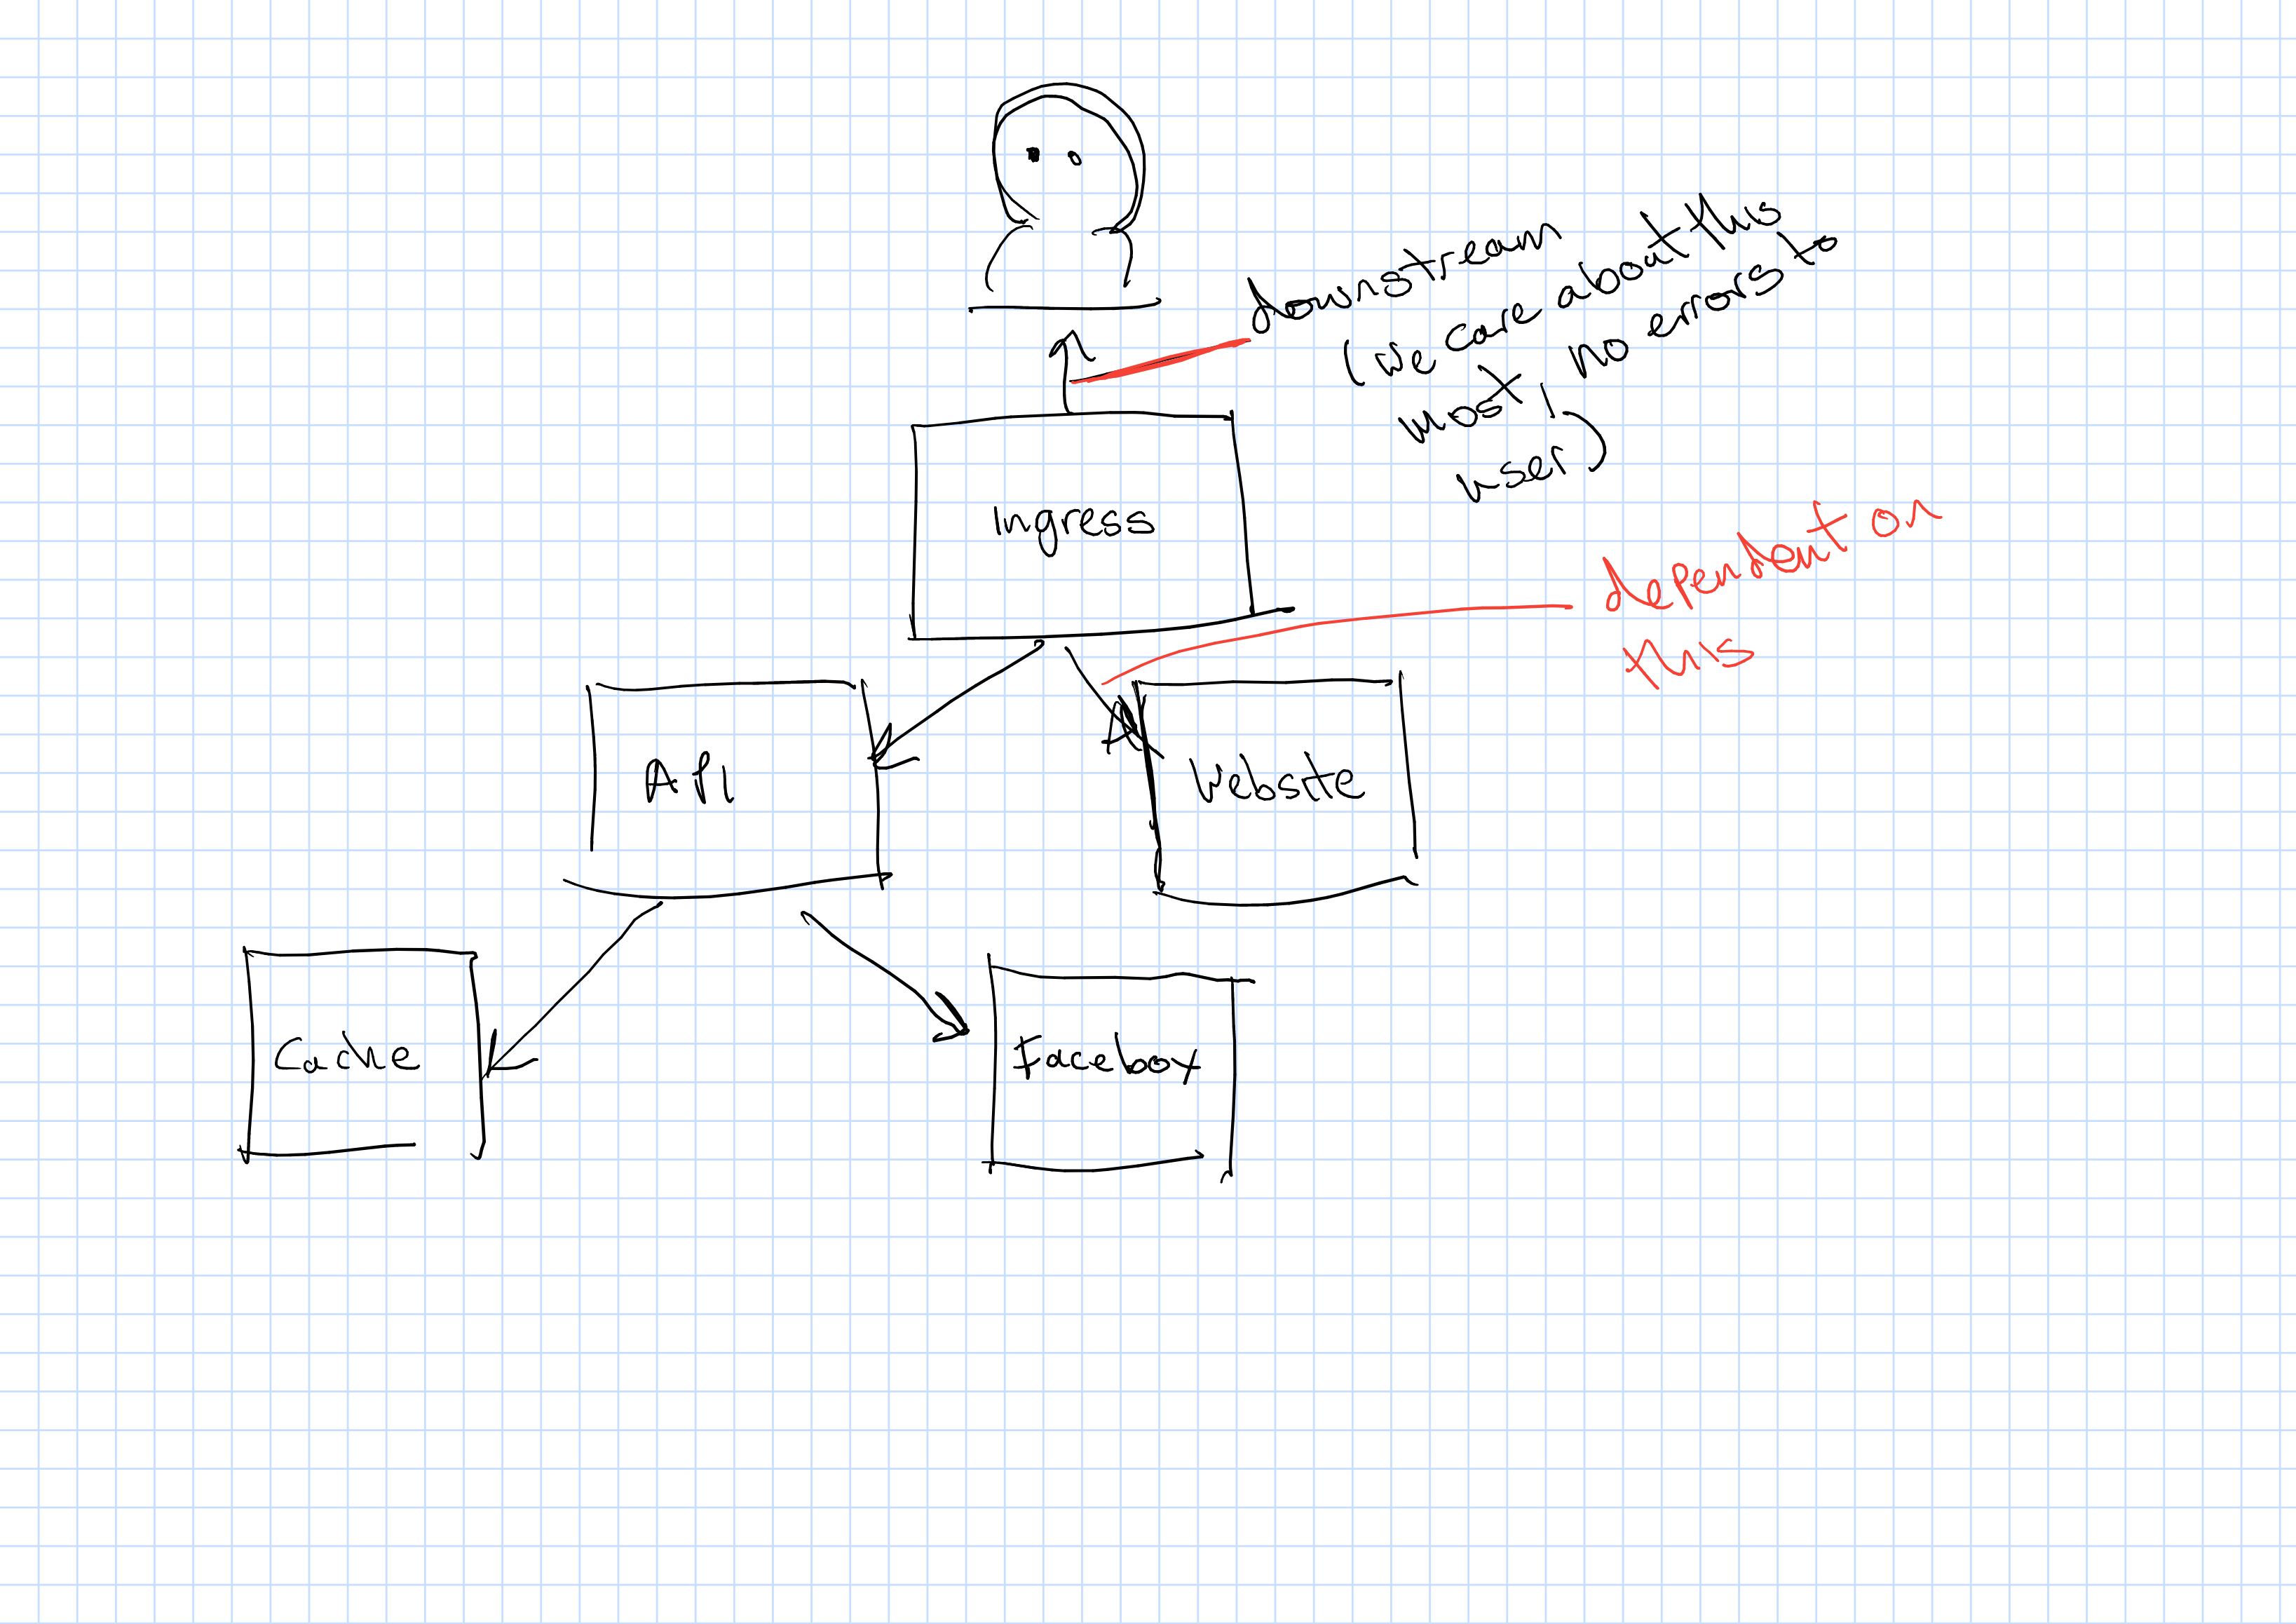 downstream
(we care about this
most, no errors to
user)
Ingress
dependent on
this
API
Website
Cache
Facebox